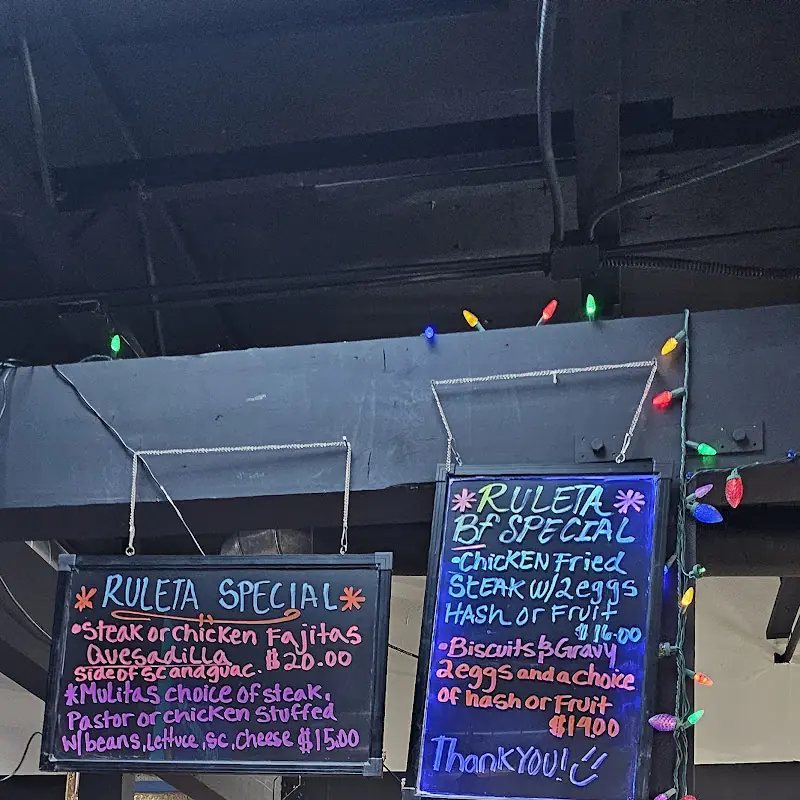 *RULETA SPECIAL*
•Steak or chicken Fajitas
Quesadilla $20.00
side of sc and guac.
*Mulitas choice of steak,
Pastor or chicken Stuffed
w/beans, Lettuce, sc, cheese $15.00
*RULETA*
Bf SPECIAL
•CHICKEN Fried
STEAK W/2eggs
HASH or Fruit
$16.00
•Biscuits & Gravy
2eggs and a choice
of hash or Fruit
$14.00
Thank YOU! :)